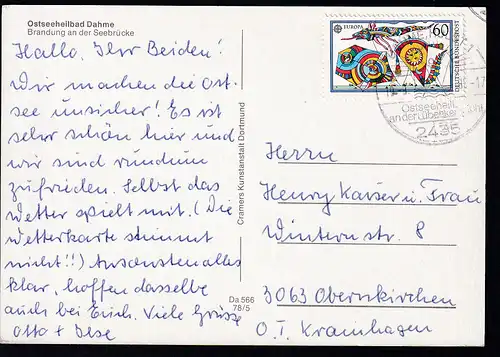 Ostseeheilbad Dahme
Brandung an der Seebrücke
Hallo, Ihr Beiden!
Wir machen die Ost-
see unsicher! Es ist
sehr schön hier und
wir sind rundum
zufrieden. Selbst das
Wetter spielt mit. (Die
Wetterkarte stimmt
nicht!!) Ansonsten alles
klar, hoffen dasselbe
auch bei Euch. Viele Grüsse
Otto + Ilse
Cramers Kunstanstalt Dortmund
Da 566
78/5
EUROPA
60
DEUTSCHE BUNDESPOST
Ostseeheilb
an der Lübecker
2435
Herrn
Henry Kaiser u. Frau
Winternstr. 8
3063 Obernkirchen
O.T. Krainhagen